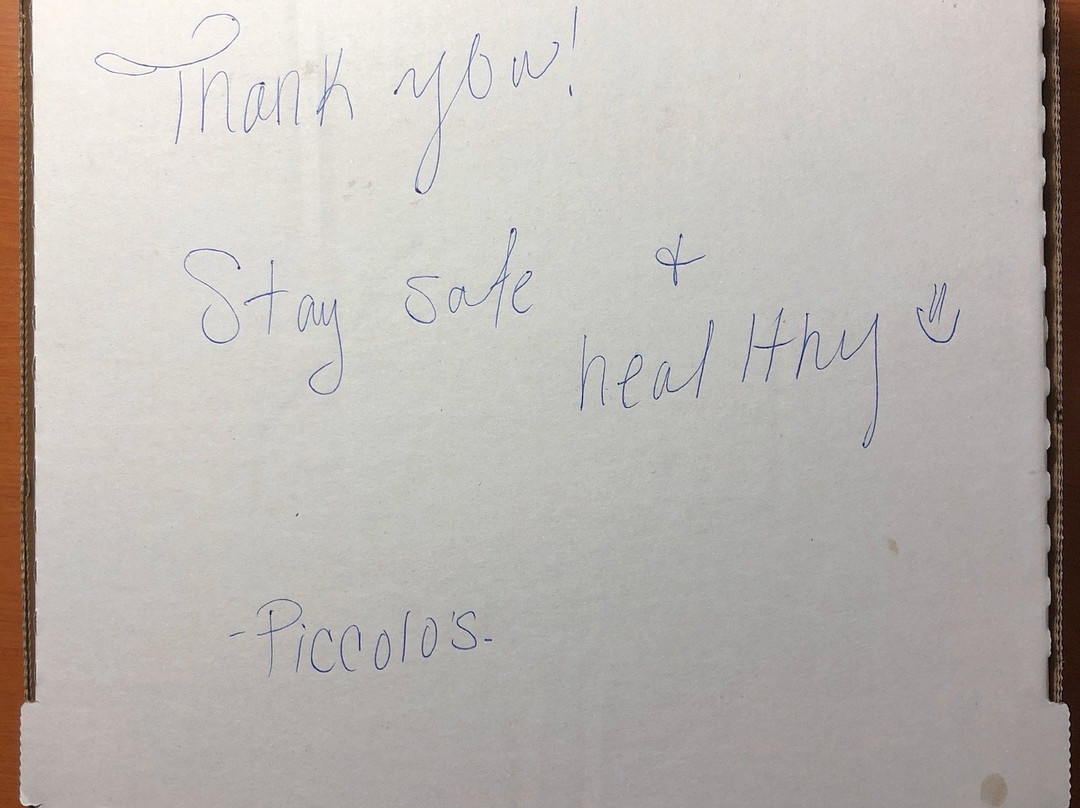 Thank you!
Stay safe &
healthy
-Piccolo's-